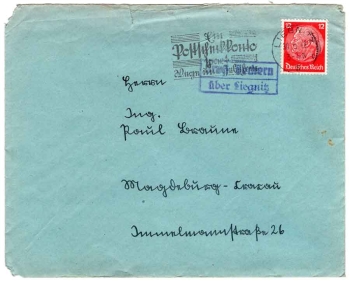 Ein
Postscheckkonto
12 12
Deutsches Reich
über Liegnitz
Herrn
Ing.
Paul Braune
Magdeburg-Cracau
Immelmannstraße 26